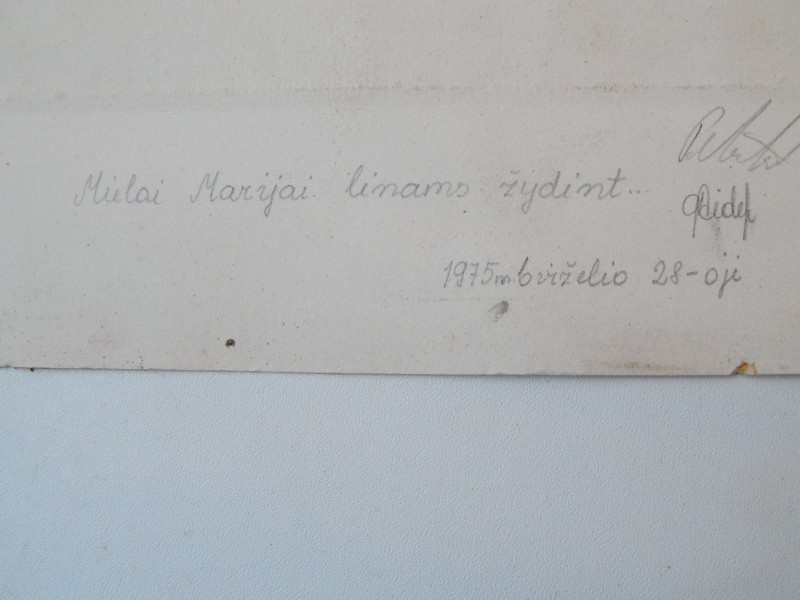 Mielai Marijai linams žydint..
1975m. birželio 28-oji